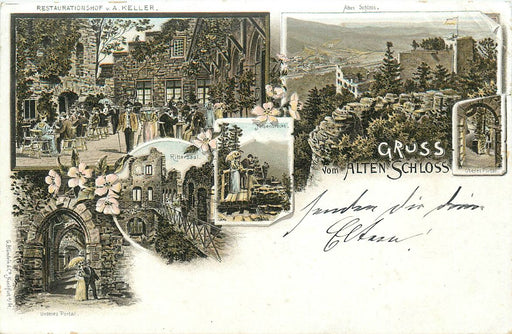 RESTAURATIONSHOF v. A. KELLER.
Altes Schloss.
Felsenbrücke.
Rittersaal.
GRUSS
vom ALTEN SCHLOSS
Oberes Portal
Unteres Portal
senden dir deine
Eltern!